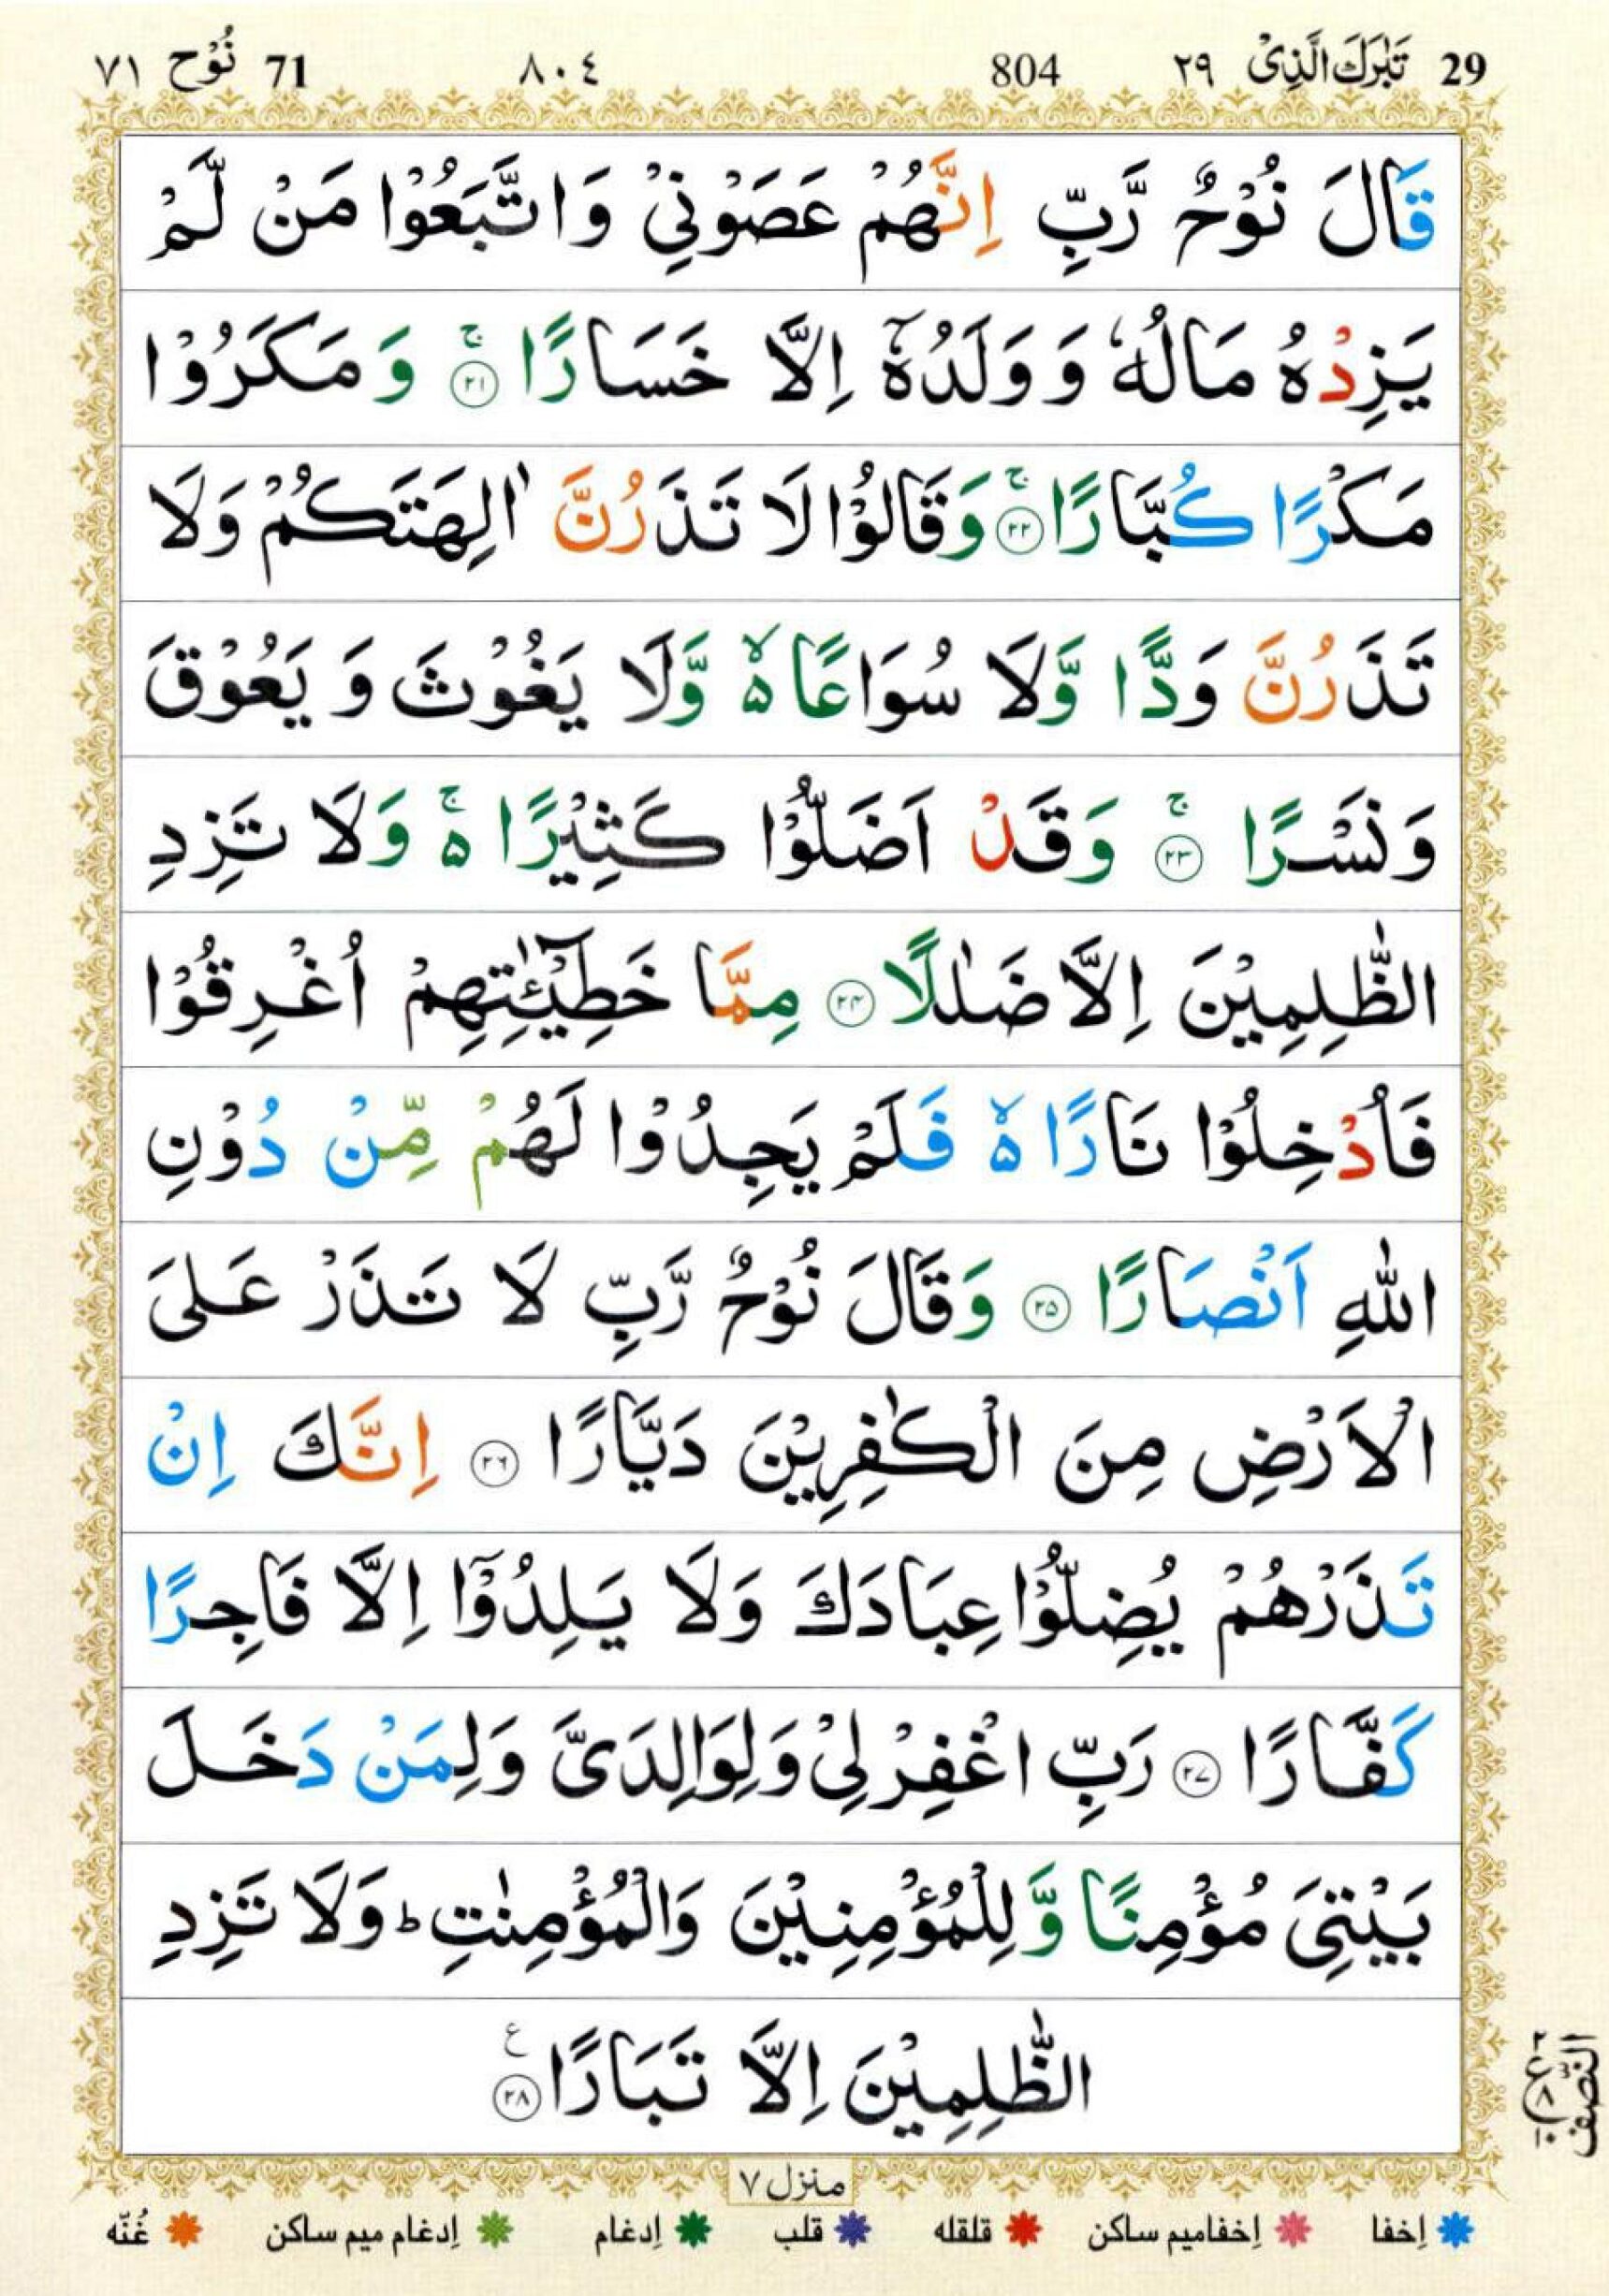 29 تَبٰرَكَ الَّذِىْ ٢٩ 804 ٨٠٤ 71 نُوْح ٧١
قَالَ نُوْحٌ رَّبِّ اِنَّهُمْ عَصَوْنِیْ وَاتَّبَعُوْا مَنْ لَّمْ
یَزِدْهُ مَالُهٗ وَ وَلَدُهٗۤ اِلَّا خَسَارًا ۚ ﴿۲۱﴾ وَ مَكَرُوْا
مَكْرًا كُبَّارًا ۚ ﴿۲۲﴾ وَقَالُوْا لَا تَذَرُنَّ اٰلِهَتَكُمْ وَلَا
تَذَرُنَّ وَدًّا وَّلَا سُوَاعًا ۙ۵ وَّلَا یَغُوْثَ وَ یَعُوْقَ
وَنَسْرًا ۚ ﴿۲۳﴾ وَقَدْ اَضَلُّوْا كَثِیْرًا ۚ۵ وَلَا تَزِدِ
الظّٰلِمِیْنَ اِلَّا ضَلٰلًا ﴿۲۴﴾ مِمَّا خَطِیْٓـٰٔتِهِمْ اُغْرِقُوْا
فَاُدْخِلُوْا نَارًا ۙ۵ فَلَمْ یَجِدُوْا لَهُمْ مِّنْ دُوْنِ
اللّٰهِ اَنْصَارًا ﴿۲۵﴾ وَقَالَ نُوْحٌ رَّبِّ لَا تَذَرْ عَلَی
الْاَرْضِ مِنَ الْكٰفِرِیْنَ دَیَّارًا ﴿۲۶﴾ اِنَّكَ اِنْ
تَذَرْهُمْ یُضِلُّوْا عِبَادَكَ وَلَا یَلِدُوْۤا اِلَّا فَاجِرًا
كَفَّارًا ﴿۲۷﴾ رَبِّ اغْفِرْ لِیْ وَلِوَالِدَیَّ وَلِمَنْ دَخَلَ
بَیْتِیَ مُؤْمِنًا وَّ لِلْمُؤْمِنِیْنَ وَالْمُؤْمِنٰتِ ؕ وَلَا تَزِدِ
الظّٰلِمِیْنَ اِلَّا تَبَارًا ﴿۲۸﴾ ع
النّصف
ع ۲ ۸ ۱۰
منزل ٧
إخفا إخفاميم ساكن قلقله قلب إدغام إدغام ميم ساكن غُنّه